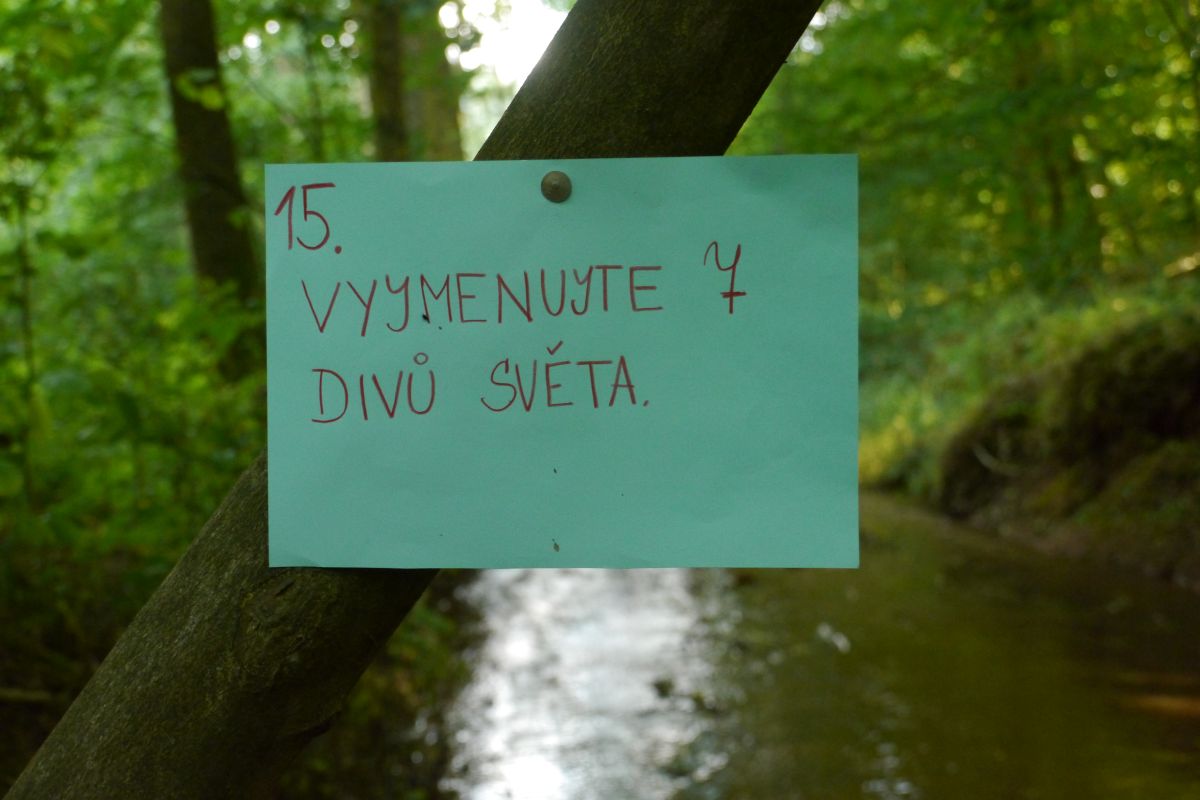 15.
VYJMENUJTE 7
DIVŮ SVĚTA.